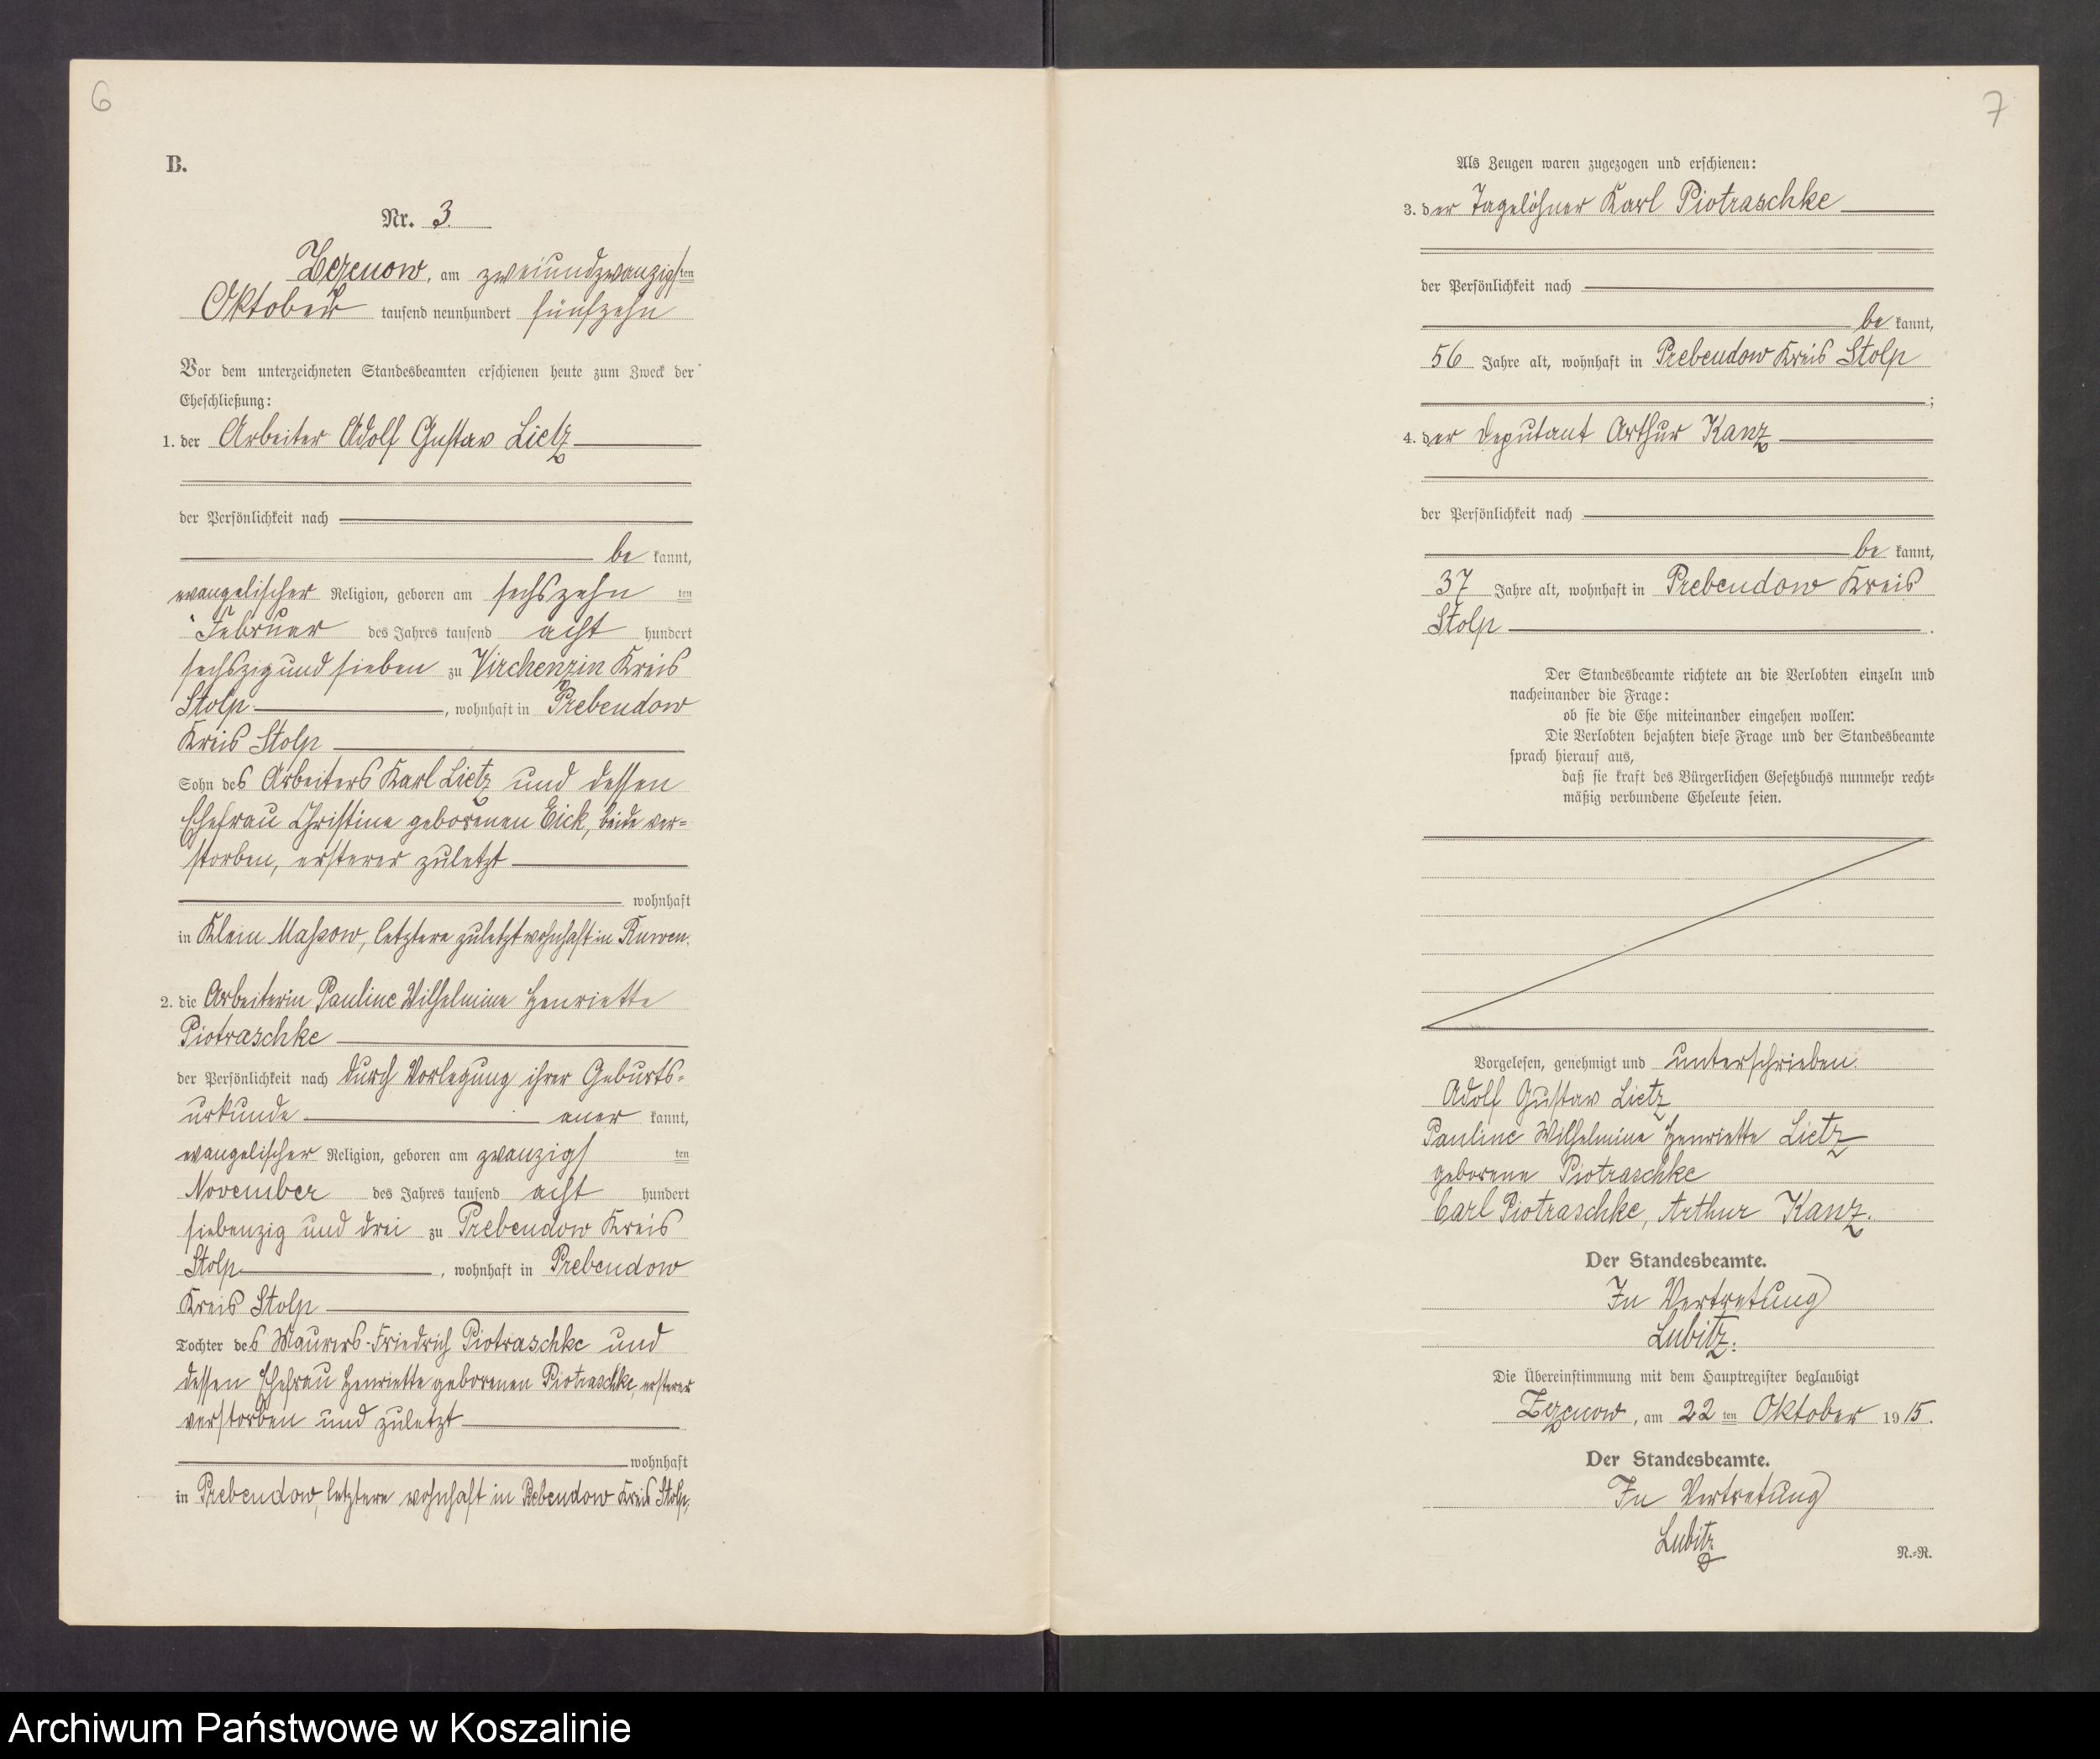 6
B.
Nr. 3.
Zezenow, am zweiundzwanzigsten
Oktober tausend neunhundert fünfzehn
Vor dem unterzeichneten Standesbeamten erschienen heute zum Zweck der
Eheschließung:
1. der Arbeiter Adolf Gustav Lietz
der Persönlichkeit nach
be kannt,
evangelischer Religion, geboren am sechszehn ten
Februar des Jahres tausend acht hundert
sechszig und sieben zu Virchenzin Kreis
Stolp, wohnhaft in Prebendow
Kreis Stolp
Sohn des Arbeiters Karl Lietz und dessen
Ehefrau Christine geborenen Eick, beide ver=
storben, ersterer zuletzt
wohnhaft
in Klein Massow, letztere zuletzt wohnhaft in Ruwen.
2. die Arbeiterin Pauline Wilhelmine Henriette
Piotraschke
der Persönlichkeit nach durch Vorlegung ihrer Geburts=
urkunde aner kannt,
evangelischer Religion, geboren am zwanzigsten
November des Jahres tausend acht hundert
siebenzig und drei zu Prebendow Kreis
Stolp, wohnhaft in Prebendow
Kreis Stolp
Tochter des Maurers Friedrich Piotraschke und
dessen Ehefrau Henriette geborenen Piotraschke, ersterer
verstorben und zuletzt
wohnhaft
in Prebendow, letztere wohnhaft in Prebendow Kreis Stolp.
7
Als Zeugen waren zugezogen und erschienen:
3. der Tagelöhner Karl Piotraschke
der Persönlichkeit nach
be kannt,
56 Jahre alt, wohnhaft in Prebendow Kreis Stolp
;
4. der Deputant Arthur Kanz
der Persönlichkeit nach
be kannt,
37 Jahre alt, wohnhaft in Prebendow Kreis
Stolp.
Der Standesbeamte richtete an die Verlobten einzeln und
nacheinander die Frage:
ob sie die Ehe miteinander eingehen wollen.
Die Verlobten bejahten diese Frage und der Standesbeamte
sprach hierauf aus,
daß sie kraft des Bürgerlichen Gesetzbuchs nunmehr recht=
mäßig verbundene Eheleute seien.
Vorgelesen, genehmigt und unterschrieben.
Adolf Gustav Lietz
Pauline Wilhelmine Henriette Lietz
geborene Piotraschke
Carl Piotraschke, Arthur Kanz.
Der Standesbeamte.
In Vertretung
Lubitz.
Die Übereinstimmung mit dem Hauptregister beglaubigt
Zezenow, am 22 ten Oktober 1915.
Der Standesbeamte.
In Vertretung
Lubitz
N.=R.
Archiwum Państwowe w Koszalinie